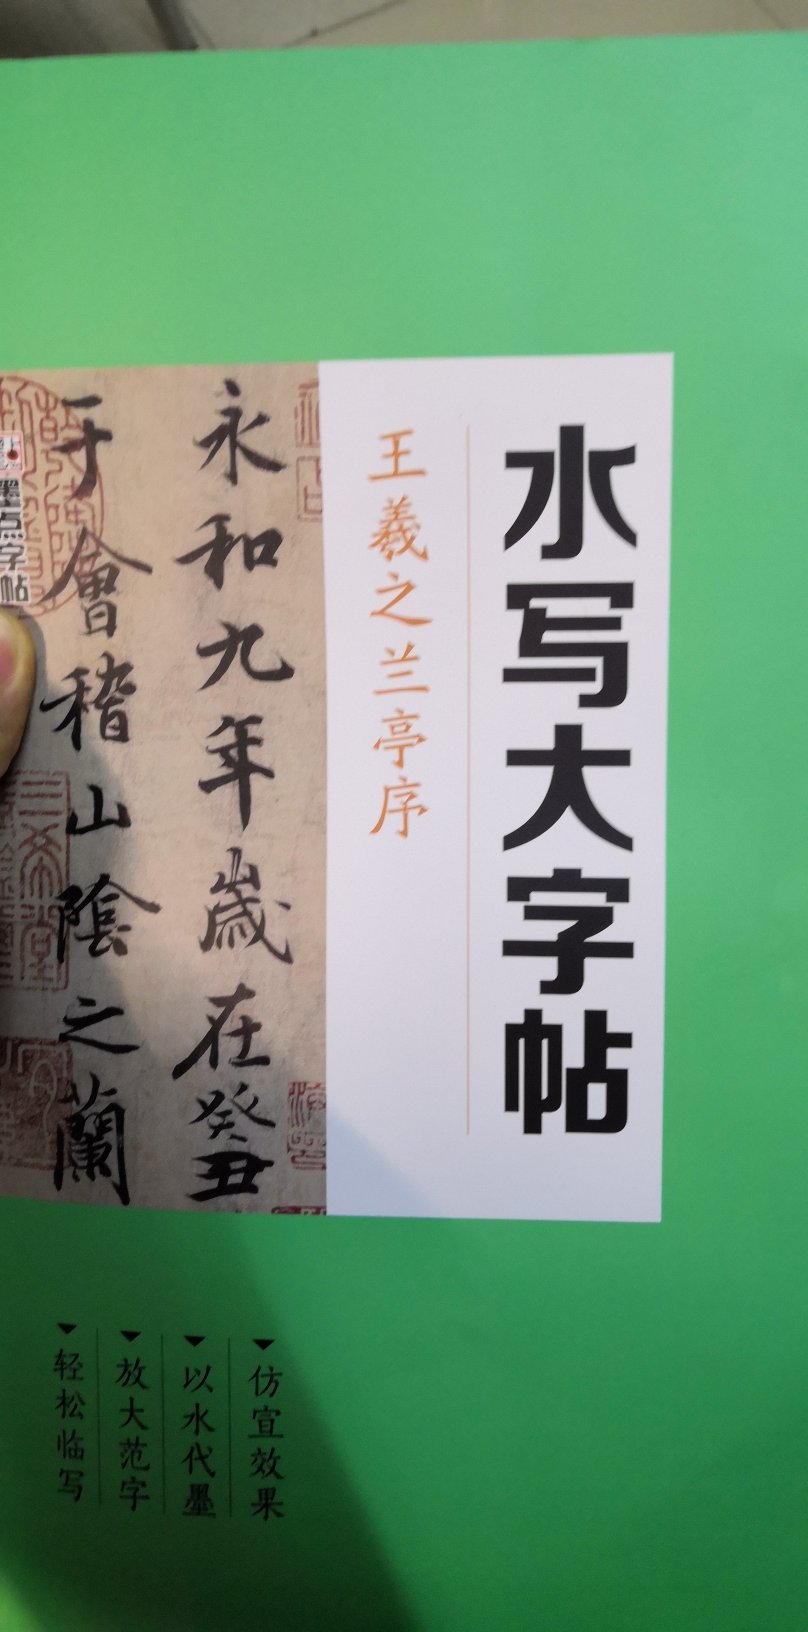 水写大字帖
王羲之兰亭序
永和九年歲在癸丑
于會稽山陰之蘭
墨点字帖
仿宣效果
以水代墨
放大范字
轻松临写